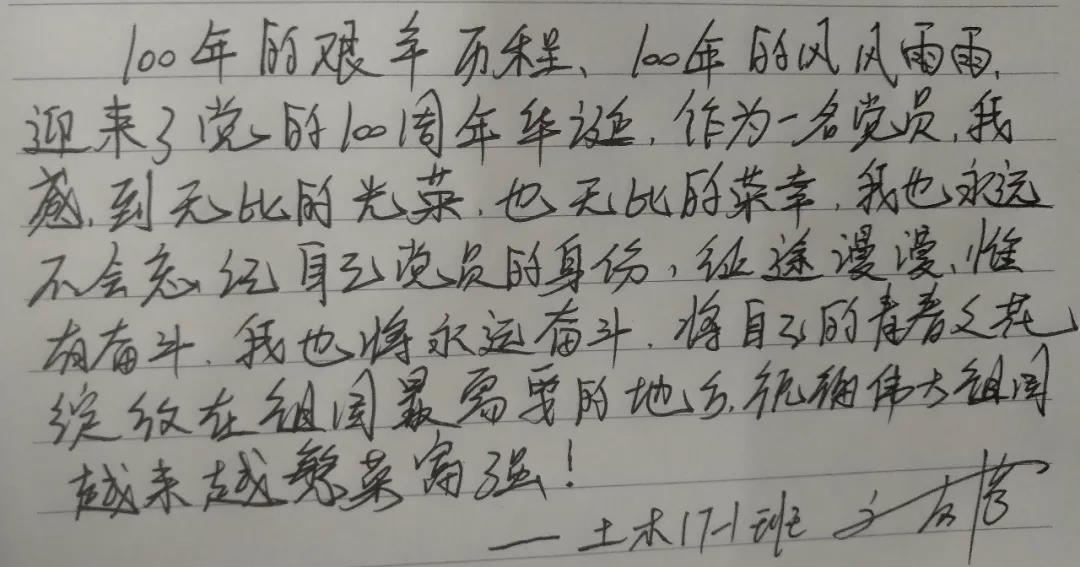 100年的艰辛历程、100年的风风雨雨,
迎来了党的100周年华诞,作为一名党员,我
感到无比的光荣,也无比的荣幸,我也永远
不会忘记自己党员的身份,征途漫漫,惟
有奋斗,我也将永远奋斗,将自己的青春之花
绽放在祖国最需要的地方,祝福伟大祖国
越来越繁荣富强!
——土木17-1班